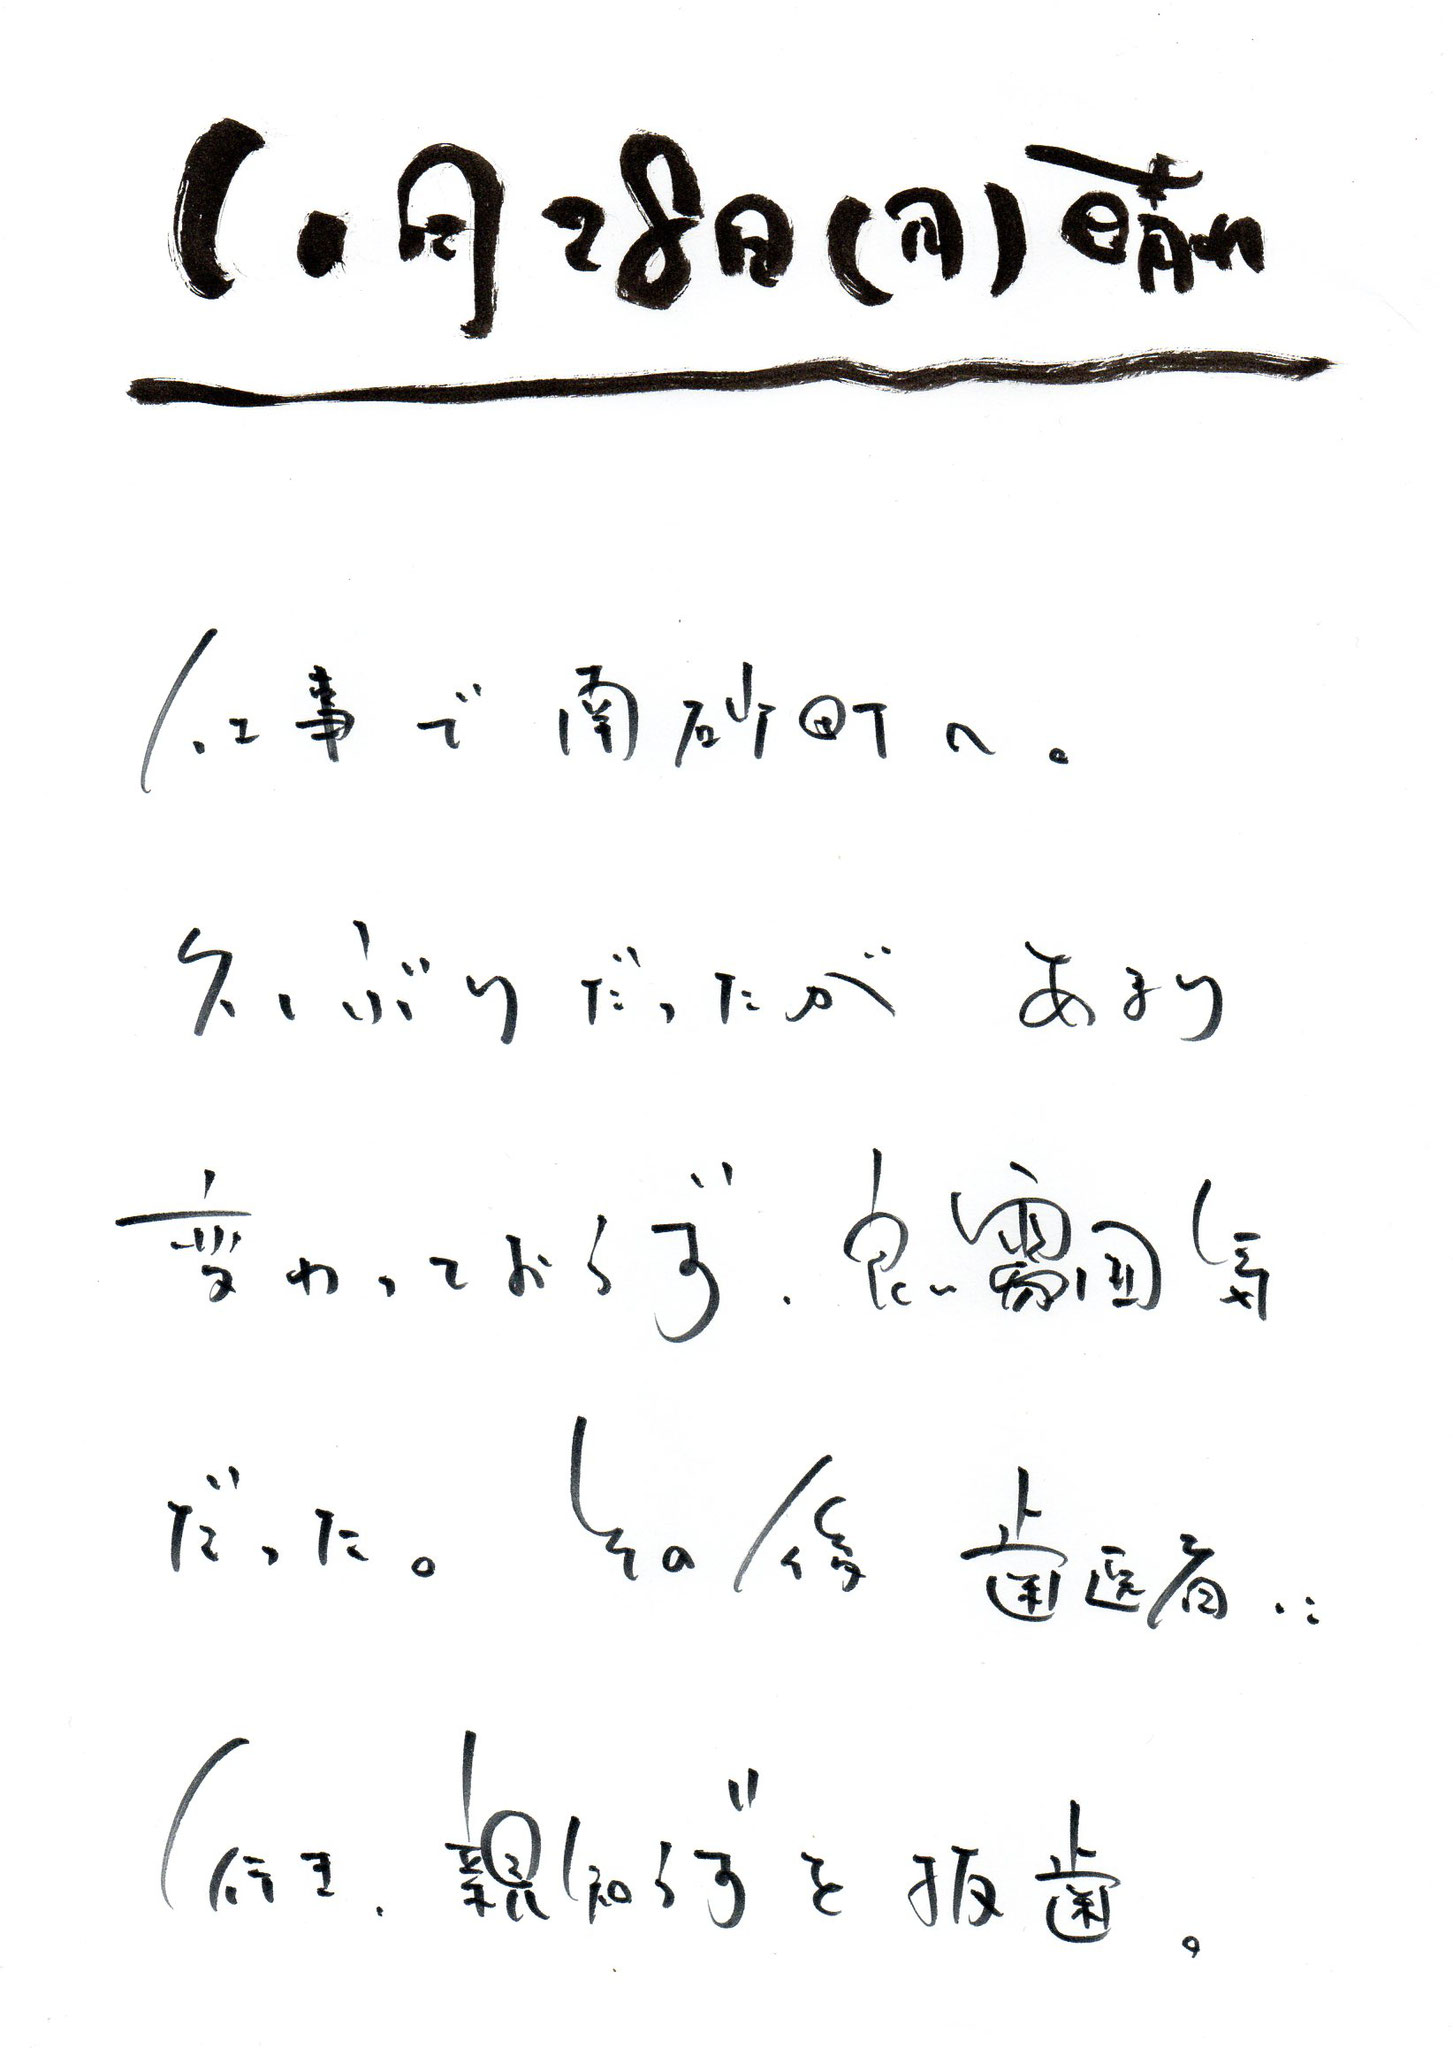 10月28日(月)晴れ
仕事で南砂町へ。
久しぶりだったがあまり
変わっておらず、良い雰囲気
だった。その後歯医者に
行き、親知らずを抜歯。